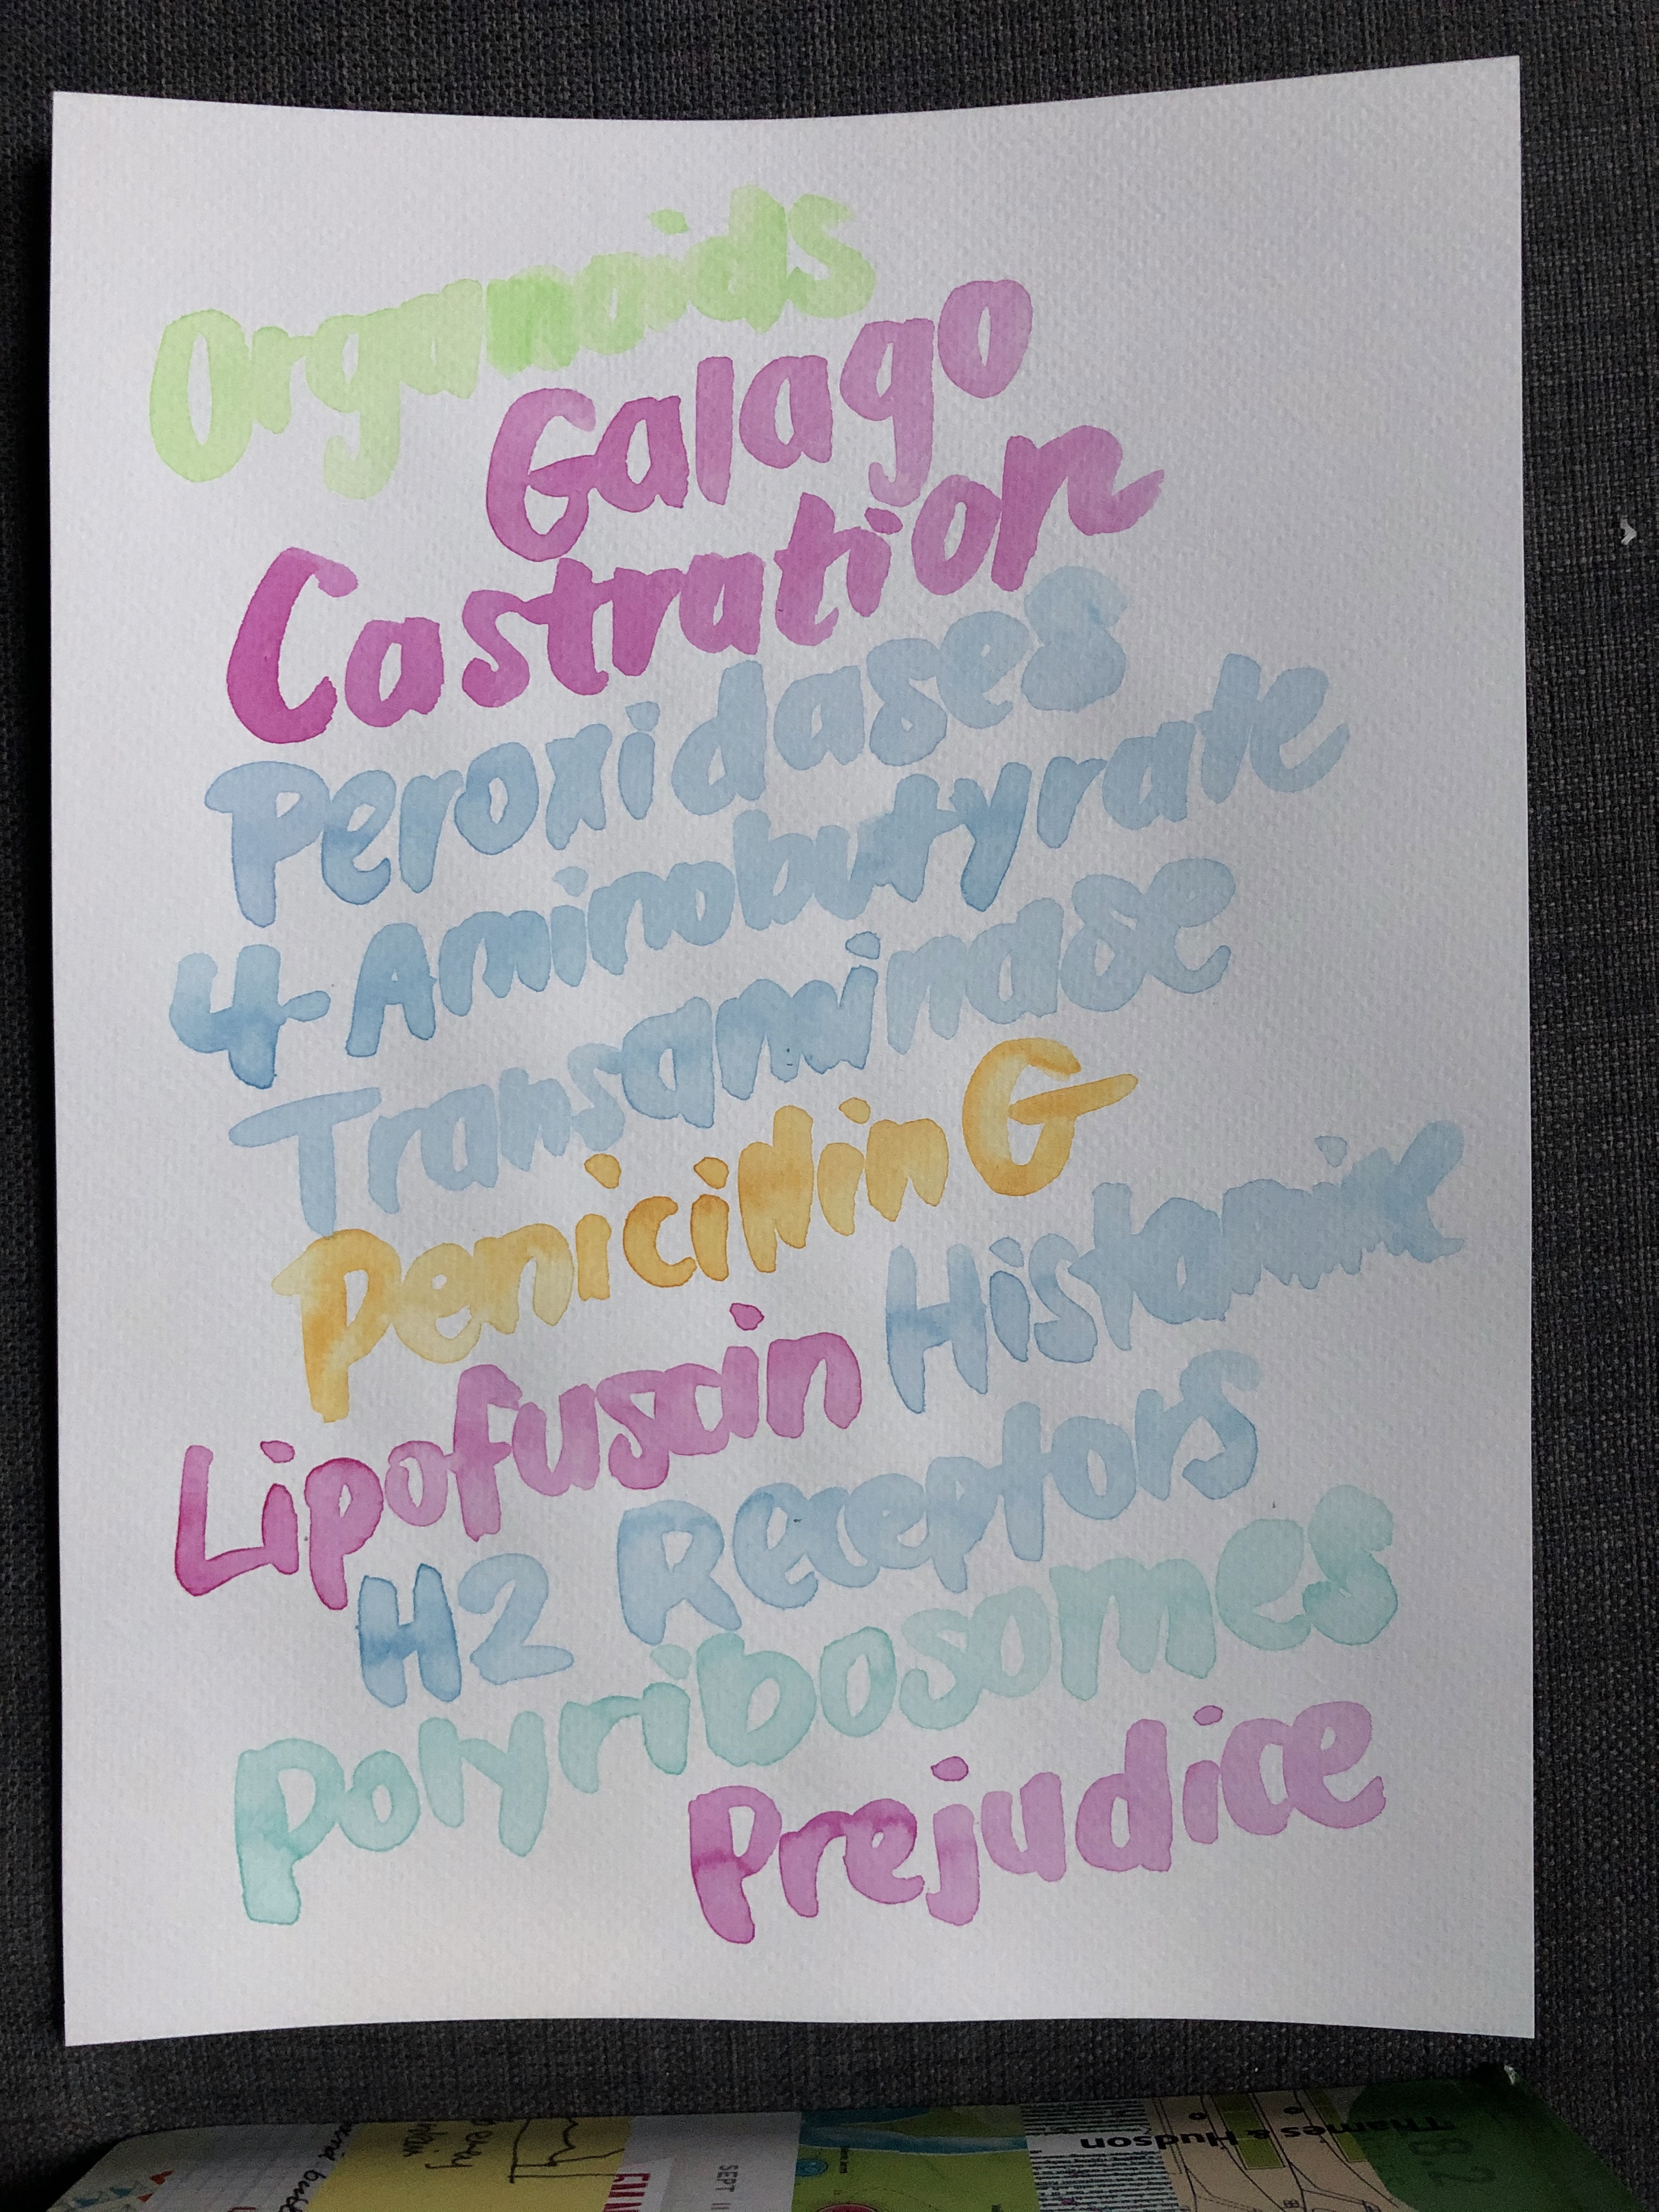 Organoids
Galago
Castration
Peroxidases
4-Aminobutyrate
Transaminase
Penicillin G
Histamine
Lipofuscin
H2 Receptors
Polyribosomes
Prejudice
Thames & Hudson
18.2
SEPT 11